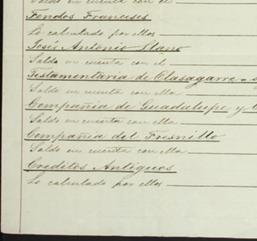 Saldo en cuenta con él
Fondos Franceses
Lo calculado por ellos
José Antonio
Saldo en cuenta con él
Testamentaria de
Saldo en cuenta con ella
Compañia de Guadalupe y
Saldo en cuenta con ella
Compañia del Fresnillo
Saldo en cuenta con ella
Creditos Antiguos
Lo calculado por ellos